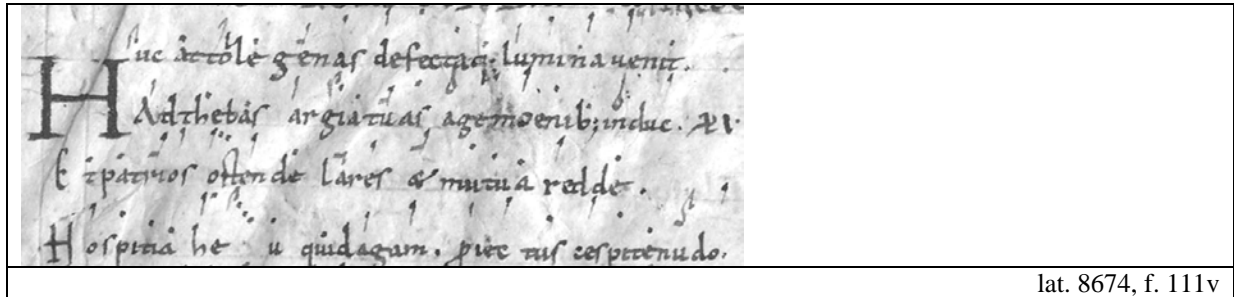 Huc attolle genas defectaq; lumina uenit.
Ad thebas argia tuas age moenib; induc.
Et patrios ostende lares & mutua redde.
Hospitia he u quid agam. proiec tus cespite nudo.
lat. 8674, f. 111v